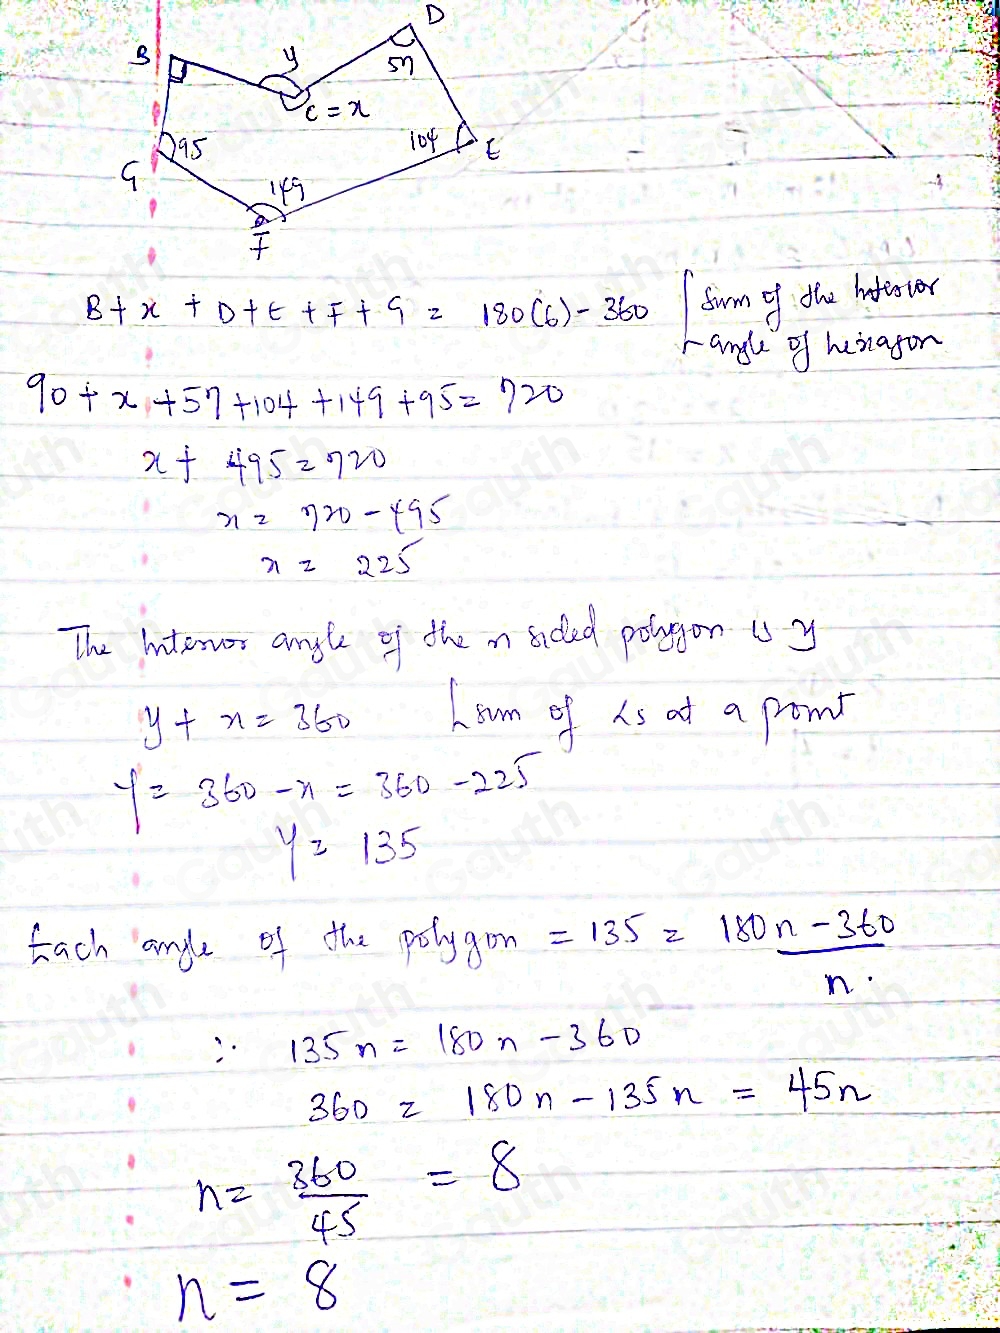 D
B
y
57
C = x
95
104
E
G
149
F
B + x + D + E + F + G = 180(6) - 360 [sum of the Interior
angle of hexagon
90 + x + 57 + 104 + 149 + 95 = 720
x + 495 = 720
x = 720 - 495
x = 225
The Interior angle of the n sided polygon is y
y + x = 360 [sum of ∠s at a point
y = 360 - x = 360 - 225
y = 135
Each angle of the polygon = 135 = 180n - 360
n.
∴ 135n = 180n - 360
360 = 180n - 135n = 45n
n = 360 = 8
45
n = 8